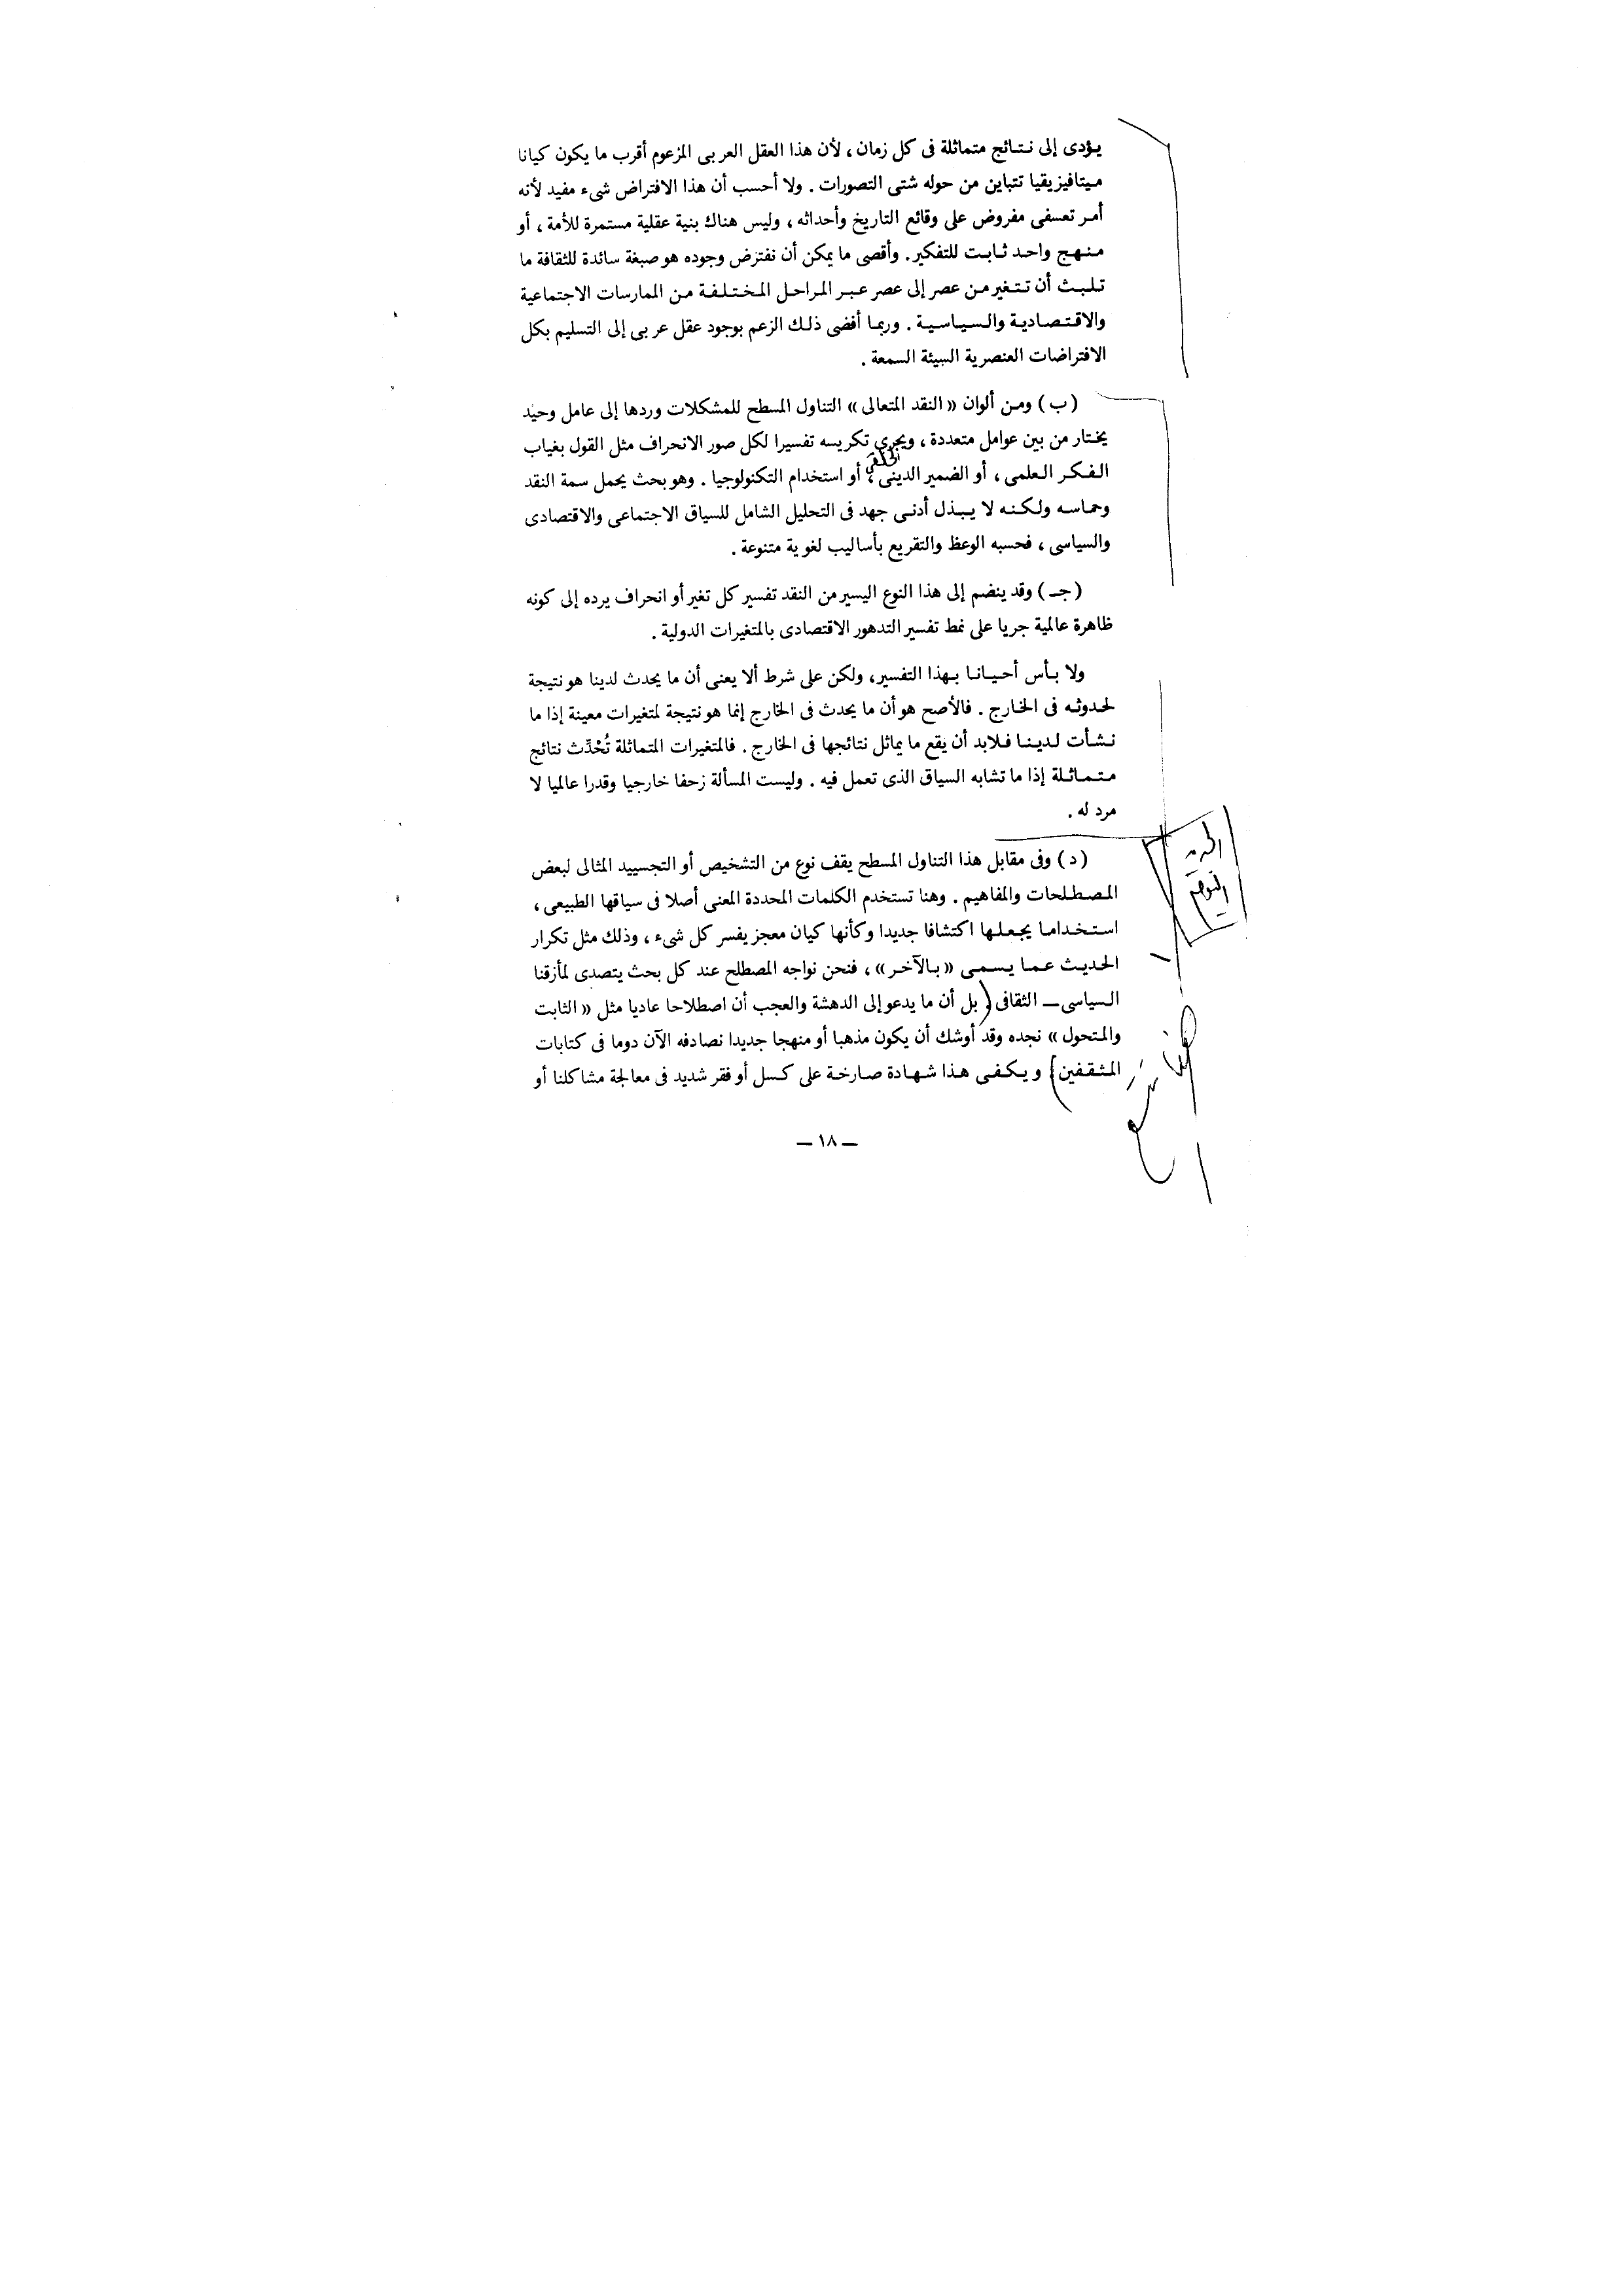 يؤدى إلى نتائج متماثلة فى كل زمان ، لأن هذا العقل العربى المزعوم أقرب ما يكون كيانا
ميتافيزيقيا تتباين من حوله شتى التصورات . ولا أحسب أن هذا الافتراض شىء مفيد لأنه
أمر تعسفى مفروض على وقائع التاريخ وأحداثه ، وليس هناك بنية عقلية مستمرة للأمة ، أو
منهج واحد ثابت للتفكير. وأقصى ما يمكن أن نفترض وجوده هو صبغة سائدة للثقافة ما
تلبث أن تتغير من عصر إلى عصر عبر المراحل المختلفة من الممارسات الاجتماعية
والاقتصادية والسياسية . وربما أفضى ذلك الزعم بوجود عقل عربى إلى التسليم بكل
الافتراضات العنصرية السيئة السمعة .
( ب ) ومن ألوان « النقد المتعالى » التناول المسطح للمشكلات وردها إلى عامل وحيد
يختار من بين عوامل متعددة ، ويجرى تكريسه تفسيرا لكل صور الانحراف مثل القول بغياب
الفكر العلمى ، أو الضمير الدينى ، أو استخدام التكنولوجيا . وهو بحث يحمل سمة النقد
وحماسه ولكنه لا يبذل أدنى جهد فى التحليل الشامل للسياق الاجتماعى والاقتصادى
والسياسى ، فحسبه الوعظ والتقريع بأساليب لغوية متنوعة .
( جـ ) وقد ينضم إلى هذا النوع اليسير من النقد تفسير كل تغير أو انحراف يرده إلى كونه
ظاهرة عالمية جريا على نمط تفسير التدهور الاقتصادى بالمتغيرات الدولية .
ولا بأس أحيانا بهذا التفسير، ولكن على شرط ألا يعنى أن ما يحدث لدينا هو نتيجة
لحدوثه فى الخارج . فالأصح هو أن ما يحدث فى الخارج إنما هو نتيجة لمتغيرات معينة إذا ما
نشأت لدينا فلابد أن يقع ما يماثل نتائجها فى الخارج . فالمتغيرات المتماثلة تُحْدِث نتائج
متماثلة إذا ما تشابه السياق الذى تعمل فيه . وليست المسألة زحفا خارجيا وقدرا عالميا لا
مرد له .
( د ) وفى مقابل هذا التناول المسطح يقف نوع من التشخيص أو التجسييد المثالى لبعض
المصطلحات والمفاهيم . وهنا تستخدم الكلمات المحددة المعنى أصلا فى سياقها الطبيعى ،
استخداما يجعلها اكتشافا جديدا وكأنها كيان معجز يفسر كل شىء ، وذلك مثل تكرار
الحديث عما يسمى « بالآخر » ، فنحن نواجه المصطلح عند كل بحث يتصدى لمأزقنا
السياسى ــ الثقافى . بل أن ما يدعو إلى الدهشة والعجب أن اصطلاحا عاديا مثل « الثابت
والمتحول » نجده وقد أوشك أن يكون مذهبا أو منهجا جديدا نصادفه الآن دوما فى كتابات
المثقفين ) ويكفى هذا شهادة صارخة على كسل أو فقر شديد فى معالجة مشاكلنا أو
ــ ١٨ ــ